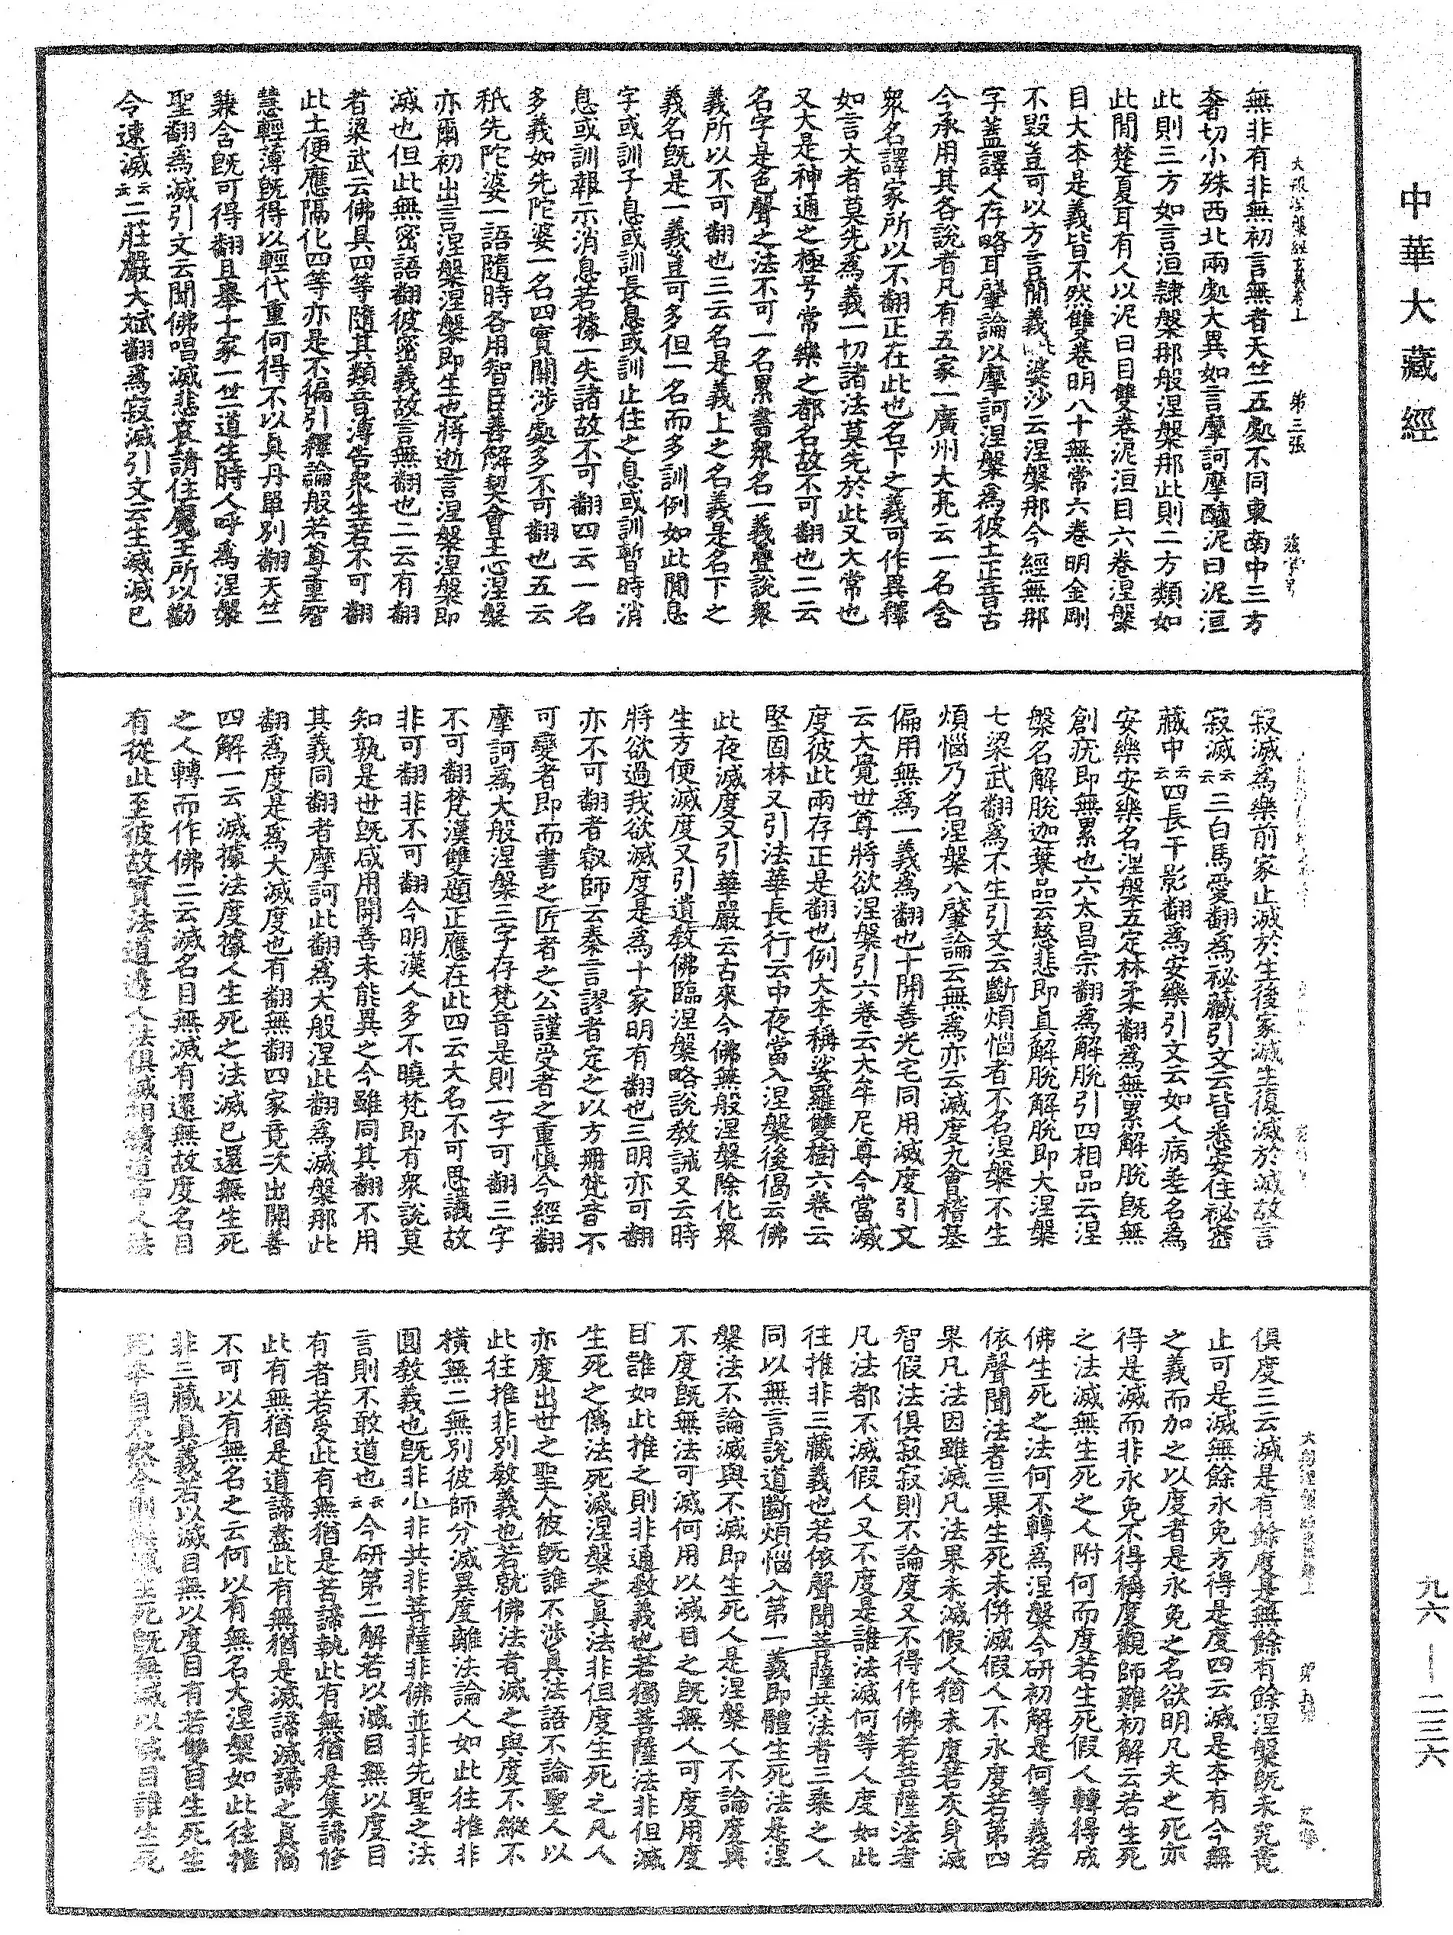 中華大藏經
九六—二三六
大般涅槃經玄義卷上　第三張
無非有非無初言無者天竺五處不同東南中三方
奢切小殊西北兩處大異如言摩訶摩醯泥曰泥洹
此則三方如言洹隸槃那般涅槃那此則二方類如
此間楚夏耳有人以泥曰目雙卷泥洹目六卷涅槃
目大本是義皆不然雙卷明八十無常六卷明金剛
不毀豈可以方言簡義婆沙云涅槃那今經無那
字蓋譯人存略耳肇論以摩訶涅槃為彼土正音古
今承用其各說者凡有五家一廣州大亮云一名含
衆名譯家所以不翻正在此也名下之義可作異釋
如言大者莫先為義一切諸法莫先於此又大常也
又大是神通之極号常樂之都名故不可翻也二云
名字是色聲之法不可一名累書衆名一義疊說衆
義所以不可翻也三云名是義上之名義是名下之
義名旣是一義豈可多但一名而多訓例如此間息
字或訓子息或訓長息或訓止住之息或訓暫時消
息或訓報示消息若據一失諸故不可翻四云一名
多義如先陀婆一名四實關涉處多不可翻也五云
秖先陀婆一語隨時各用智臣善解契會王心涅槃
亦爾初出言涅槃涅槃即生也將逝言涅槃涅槃即
滅也但此無密語翻彼密義故言無翻也二云有翻
者梁武云佛具四等隨其類音溥告衆生若不可翻
此土便應隔化四等亦是不徧引釋論般若尊重智
慧輕薄旣得以輕代重何得不以真丹單別翻天竺
兼含旣可得翻且舉十家一竺道生時人呼為涅槃
聖翻為滅引文云聞佛唱滅悲哀請住魔王所以勸
令速滅云云二莊嚴大斌翻為寂滅引文云生滅滅已
寂滅為樂前家止滅於生後家滅生復滅於滅故言
寂滅云云三白馬愛翻為祕藏引文云皆悉安住祕密
藏中云云四長干影翻為安樂引文云如人病差名為
安樂安樂名涅槃五定林柔翻為無累解脫旣無
創疣即無累也六太昌宗翻為解脫引四相品云涅
槃名解脫迦葉品云慈悲即真解脫解脫即大涅槃
七梁武翻為不生引文云斷煩惱者不名涅槃不生
煩惱乃名涅槃八肇論云無為亦云滅度九會稽基
偏用無為一義為翻也十開善光宅同用滅度引文
云大覺世尊將欲涅槃引六卷云大牟尼尊今當滅
度彼此兩存正是翻也例大本稱娑羅雙樹六卷云
堅固林又引法華長行云中夜當入涅槃後偈云佛
此夜滅度又引華嚴云古來今佛無般涅槃除化衆
生方便滅度又引遺教佛臨涅槃略說教誡又云時
將欲過我欲滅度是為十家明有翻也三明亦可翻
亦不可翻者叡師云秦言謬者定之以方冊梵音不
可變者即而書之匠者之公謹受者之重慎今經翻
摩訶為大般涅槃三字存梵音是則一字可翻三字
不可翻梵漢雙題正應在此四云大名不可思議故
非可翻非不可翻今明漢人多不曉梵即有衆說莫
知孰是世旣咸用開善未能異之今雖同其翻不用
其義同翻者摩訶此翻為大般涅此翻為滅槃那此
翻為度是為大滅度也有翻無翻四家竟次出開善
四解一云滅據法度據人生死之法滅已還無生死
之人轉而作佛二云滅名目無滅有還無故度名目
有從此至彼故實法道邊人法俱滅相續道中人法
俱度三云滅是有餘度是無餘有餘涅槃旣未究竟
止可是滅無餘永免方得是度四云滅是本有今無
之義而加之以度者是永免之名欲明凡夫之死亦
得是滅而非永免不得稱度觀師難初解云若生死
之法滅無生死之人附何而度若生死假人轉得成
佛生死之法何不轉為涅槃今研初解是何等義若
依聲聞法者三果生死未併滅假人不永度若第四
果凡法因雖滅凡法果未滅假人猶未度若灰身滅
智假法俱寂寂則不論度又不得作佛若菩薩法者
凡法都不滅假人又不度是誰法滅何等人度如此
往推非三藏義也若依聲聞菩薩共法者三乘之人
同以無言說道斷煩惱入第一義即體生死法是涅
槃法不論滅與不滅即生死人是涅槃人不論度與
不度旣無法可滅何用以滅目之旣無人可度用度
目誰如此推之則非通教義也若獨菩薩法非但滅
生死之偽法死滅涅槃之真法非但度生死之凡人
亦度出世之聖人彼旣誰不涉真法語不論聖人以
此往推非別教義也若就佛法者滅之與度不縱不
橫無二無別彼師分滅異度離法論人如此往推非
圓教義也旣非小非共非菩薩非佛並非先聖之法
言則不敢道也云云今研第二解若以滅目無以度目
有者若受此有無猶是苦諦執此有無猶是集諦修
此有無猶是道諦盡此有無猶是滅諦滅諦之真尚
不可以有無名之云何以有無名大涅槃如此往推
非三藏真義若以滅目無以度目有若雙目生死生
死本自不然今則無滅生死旣無滅以滅目誰生死